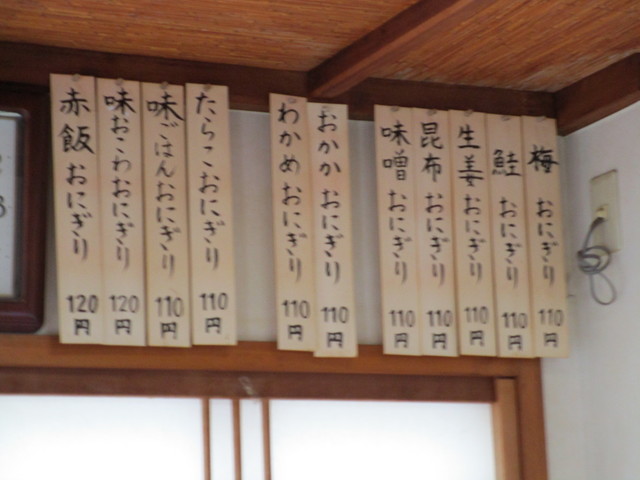 梅おにぎり 110円
鮭おにぎり 110円
生姜おにぎり 110円
昆布おにぎり 110円
味噌おにぎり 110円
おかかおにぎり 110円
わかめおにぎり 110円
たらこおにぎり 110円
味ごはんおにぎり 110円
味おこわおにぎり 120円
赤飯おにぎり 120円